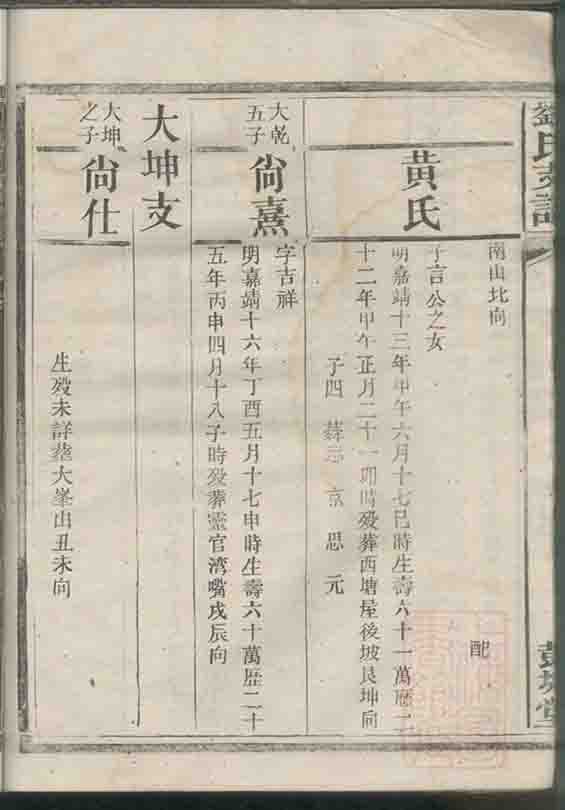 劉氏支譜
南山北向
配
黄氏
子言公之女
明嘉靖十三年甲午六月十七巳時生壽六十一萬歷二
十二年甲午正月二十一卯時殁葬西塘屋後坡艮坤向
子四
思 元
大乾
五子
尙熹
字吉祥
明嘉靖十六年丁酉五月十七申時生壽六十萬歷二十
五年丙申四月十八子時殁葬靈官湾嘴戌辰向
大坤支
大坤
之子
尙仕
生殁未詳葬大峯出丑未向